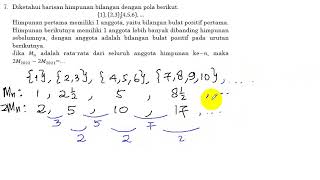 7. Diketahui barisan himpunan bilangan dengan pola berikut:
{1},{2,3},{4,5,6}, ...
Himpunan pertama memiliki 1 anggota, yaitu bilangan bulat positif pertama.
Himpunan berikutnya memiliki 1 anggota lebih banyak dibanding himpunan
sebelumnya, dengan anggota adalah bilangan bulat positif pada urutan
berikutnya.
Jika Mₙ adalah rata-rata dari seluruh anggota himpunan ke-n, maka
{1}, {2,3}, {4,5,6}, {7,8,9,10}, ...
Mn: 1, 2½, 5, 8½, ...
2Mn: 2, 5, 10, 17, ...
3 5 7
2 2 2